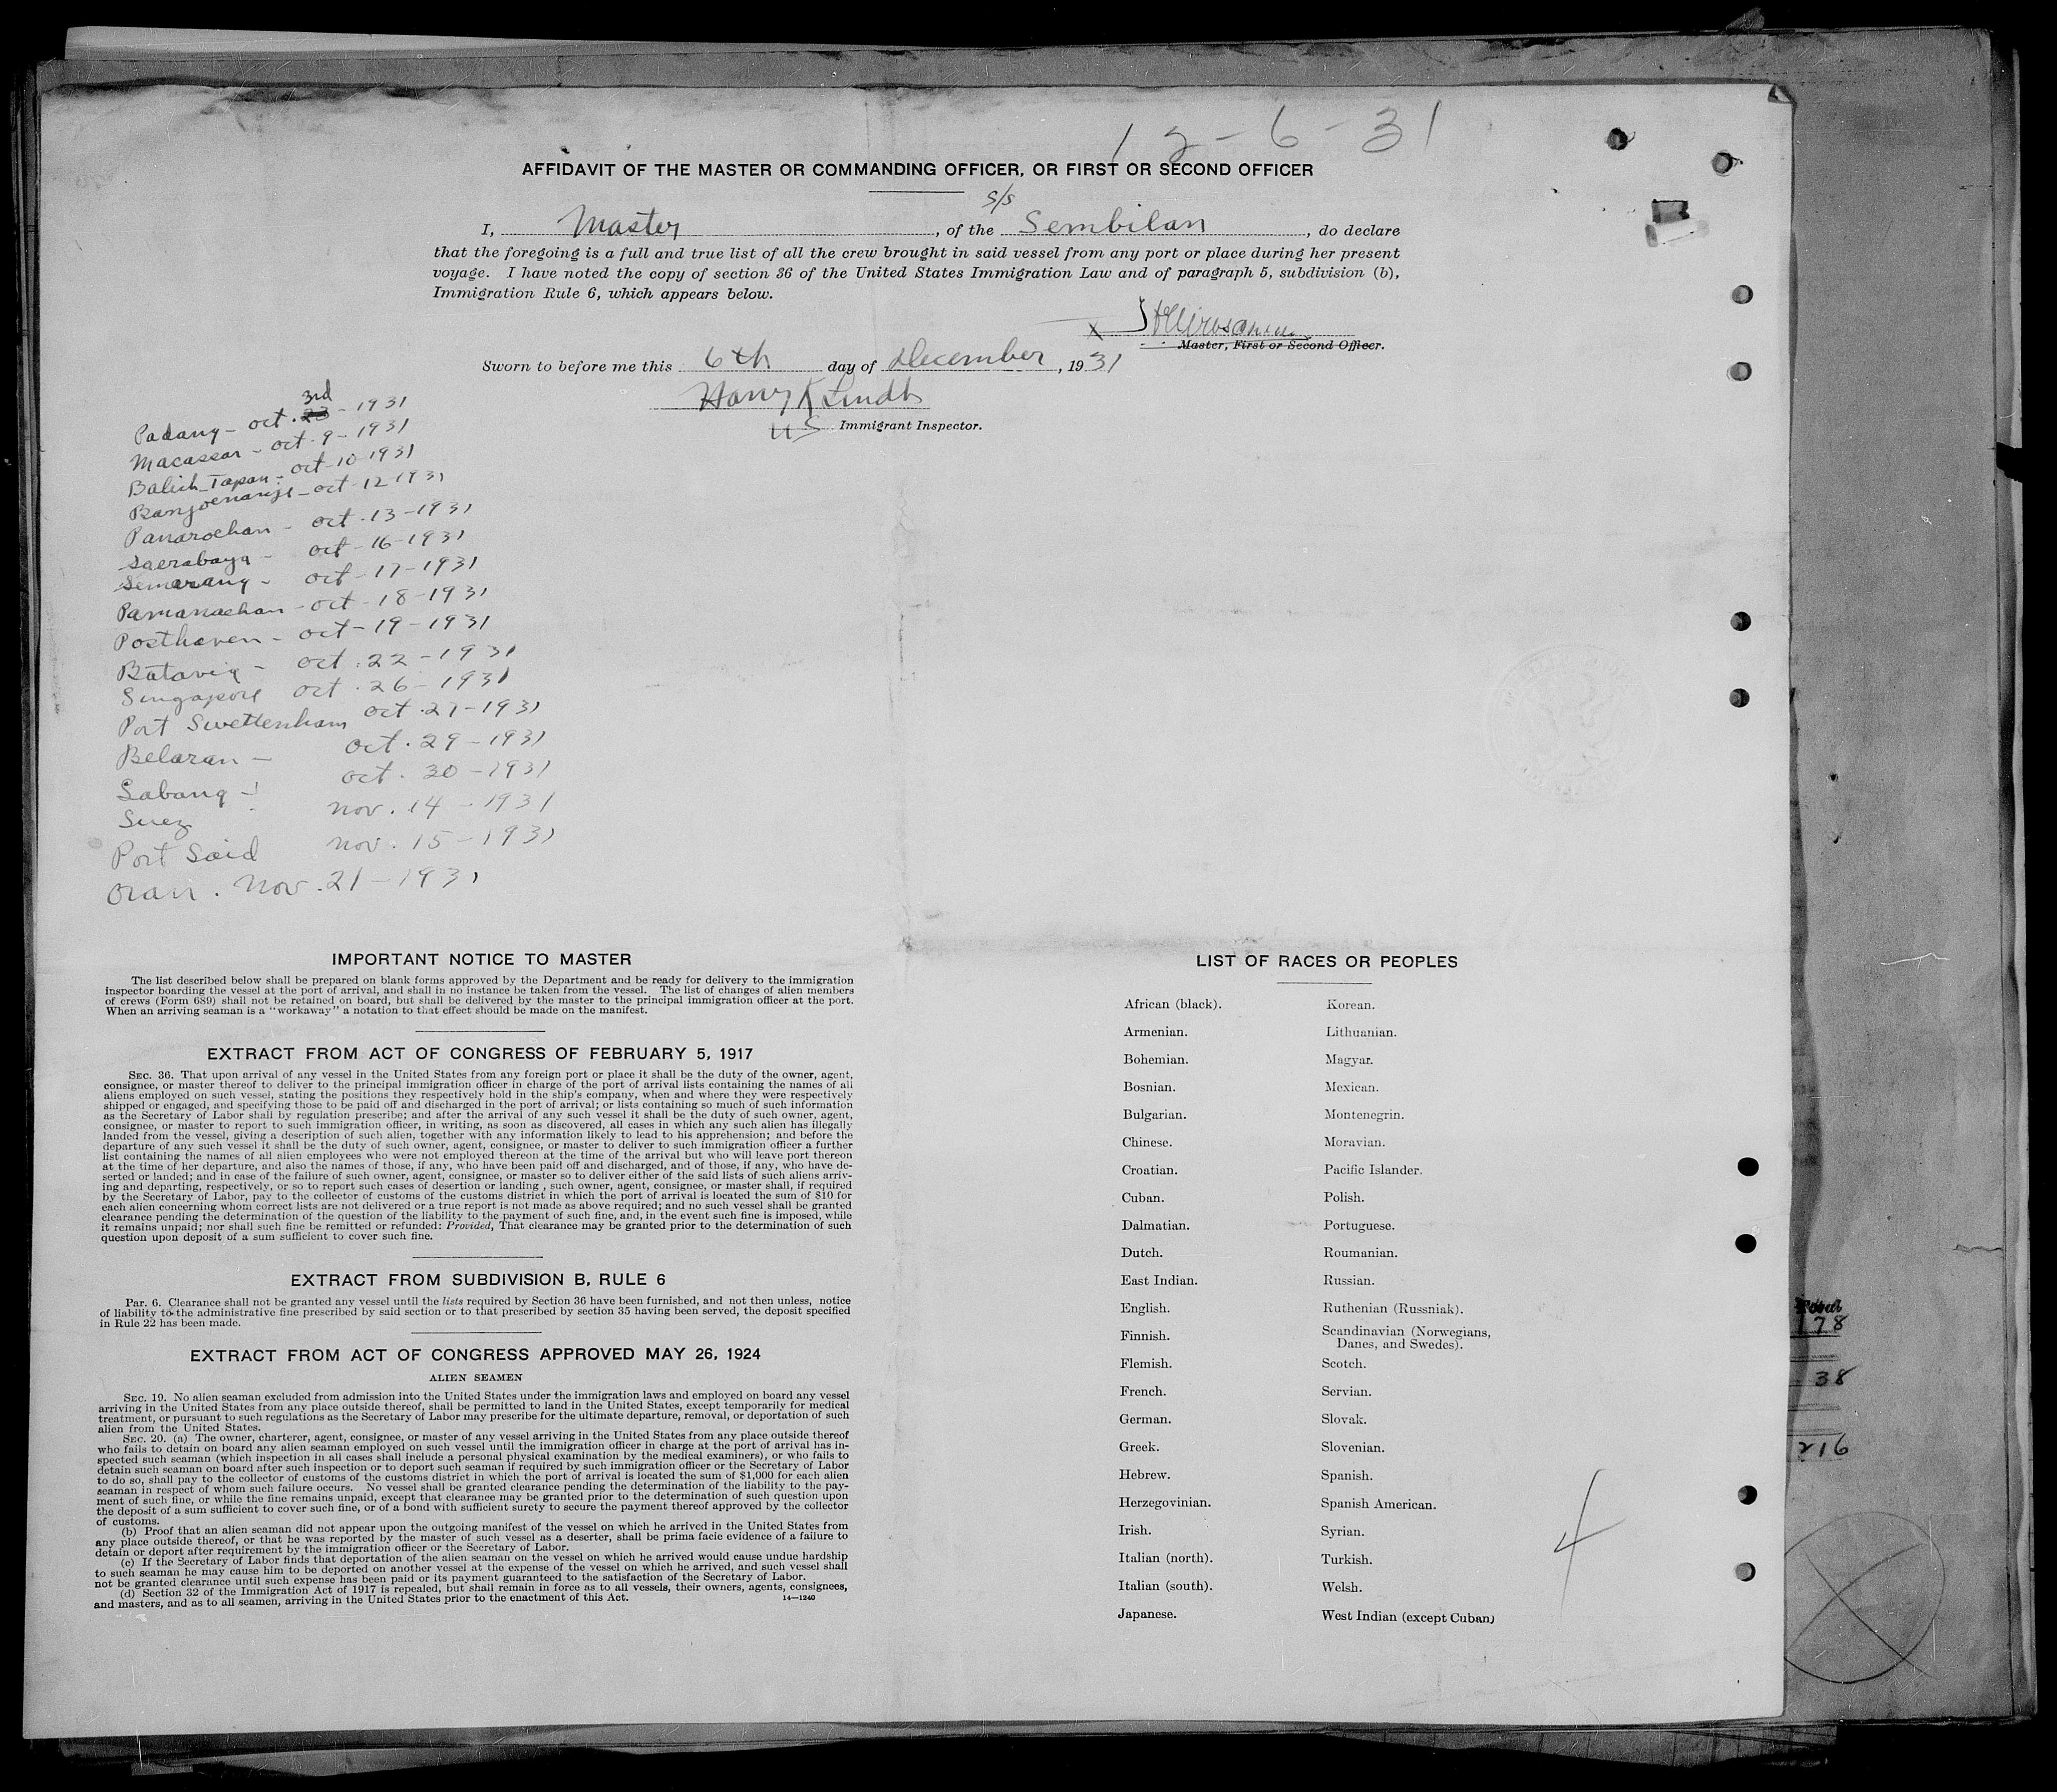 12-6-31
AFFIDAVIT OF THE MASTER OR COMMANDING OFFICER, OR FIRST OR SECOND OFFICER
s/s
I, Master, of the Sembilan, do declare
that the foregoing is a full and true list of all the crew brought in said vessel from any port or place during her present
voyage. I have noted the copy of section 36 of the United States Immigration Law and of paragraph 5, subdivision (b),
Immigration Rule 6, which appears below.
X
Master, First or Second Officer.
Sworn to before me this 6th day of December, 1931
Harry K Lindt
US Immigrant Inspector.
3rd
Padang - oct. 23 - 1931
Macassar - oct. 9 - 1931
Balick-Tapan - oct-10-1931
Banjoenangi - oct-12-1931
Panaroehan - oct.13-1931
Saerabaya - oct-16-1931
Semarang - oct-17-1931
Pamanaehan - oct-18-1931
Posthaven - oct-19-1931
Batavia - oct.22-1931
Singapore oct.26-1931
Port Swettenham oct.27-1931
Belaran - oct.29-1931
Sabang - oct.30-1931
Suez nov.14-1931
Port Said nov.15-1931
Oran. Nov.21-1931
IMPORTANT NOTICE TO MASTER
The list described below shall be prepared on blank forms approved by the Department and be ready for delivery to the immigration
inspector boarding the vessel at the port of arrival, and shall in no instance be taken from the vessel. The list of changes of alien members
of crews (Form 689) shall not be retained on board, but shall be delivered by the master to the principal immigration officer at the port.
When an arriving seaman is a "workaway" a notation to that effect should be made on the manifest.
EXTRACT FROM ACT OF CONGRESS OF FEBRUARY 5, 1917
SEC. 36. That upon arrival of any vessel in the United States from any foreign port or place it shall be the duty of the owner, agent,
consignee, or master thereof to deliver to the principal immigration officer in charge of the port of arrival lists containing the names of all
aliens employed on such vessel, stating the positions they respectively hold in the ship's company, when and where they were respectively
shipped or engaged, and specifying those to be paid off and discharged in the port of arrival; or lists containing so much of such information
as the Secretary of Labor shall by regulation prescribe; and after the arrival of any such vessel it shall be the duty of such owner, agent,
consignee, or master to report to such immigration officer, in writing, as soon as discovered, all cases in which any such alien has illegally
landed from the vessel, giving a description of such alien, together with any information likely to lead to his apprehension; and before the
departure of any such vessel it shall be the duty of such owner, agent, consignee, or master to deliver to such immigration officer a further
list containing the names of all alien employees who were not employed thereon at the time of the arrival but who will leave port thereon
at the time of her departure, and also the names of those, if any, who have been paid off and discharged, and of those, if any, who have de-
serted or landed; and in case of the failure of such owner, agent, consignee, or master so to deliver either of the said lists of such aliens arriv-
ing and departing, respectively, or so to report such cases of desertion or landing , such owner, agent, consignee, or master shall, if required
by the Secretary of Labor, pay to the collector of customs of the customs district in which the port of arrival is located the sum of $10 for
each alien concerning whom correct lists are not delivered or a true report is not made as above required; and no such vessel shall be granted
clearance pending the determination of the question of the liability to the payment of such fine, and, in the event such fine is imposed, while
it remains unpaid; nor shall such fine be remitted or refunded: Provided, That clearance may be granted prior to the determination of such
question upon deposit of a sum sufficient to cover such fine.
EXTRACT FROM SUBDIVISION B, RULE 6
PAR. 6. Clearance shall not be granted any vessel until the lists required by Section 36 have been furnished, and not then unless, notice
of liability to the administrative fine prescribed by said section or to that prescribed by section 35 having been served, the deposit specified
in Rule 22 has been made.
EXTRACT FROM ACT OF CONGRESS APPROVED MAY 26, 1924
ALIEN SEAMEN
SEC. 19. No alien seaman excluded from admission into the United States under the immigration laws and employed on board any vessel
arriving in the United States from any place outside thereof, shall be permitted to land in the United States, except temporarily for medical
treatment, or pursuant to such regulations as the Secretary of Labor may prescribe for the ultimate departure, removal, or deportation of such
alien from the United States.
SEC. 20. (a) The owner, charterer, agent, consignee, or master of any vessel arriving in the United States from any place outside thereof
who fails to detain on board any alien seaman employed on such vessel until the immigration officer in charge at the port of arrival has in-
spected such seaman (which inspection in all cases shall include a personal physical examination by the medical examiners), or who fails to
detain such seaman on board after such inspection or to deport such seaman if required by such immigration officer or the Secretary of Labor
to do so, shall pay to the collector of customs of the customs district in which the port of arrival is located the sum of $1,000 for each alien
seaman in respect of whom such failure occurs. No vessel shall be granted clearance pending the determination of the liability to the pay-
ment of such fine, or while the fine remains unpaid, except that clearance may be granted prior to the determination of such question upon
the deposit of a sum sufficient to cover such fine, or of a bond with sufficient surety to secure the payment thereof approved by the collector
of customs.
(b) Proof that an alien seaman did not appear upon the outgoing manifest of the vessel on which he arrived in the United States from
any place outside thereof, or that he was reported by the master of such vessel as a deserter, shall be prima facie evidence of a failure to
detain or deport after requirement by the immigration officer or the Secretary of Labor.
(c) If the Secretary of Labor finds that deportation of the alien seaman on the vessel on which he arrived would cause undue hardship
to such seaman he may cause him to be deported on another vessel at the expense of the vessel on which he arrived, and such vessel shall
not be granted clearance until such expense has been paid or its payment guaranteed to the satisfaction of the Secretary of Labor.
(d) Section 32 of the Immigration Act of 1917 is repealed, but shall remain in force as to all vessels, their owners, agents, consignees,
and masters, and as to all seamen, arriving in the United States prior to the enactment of this Act.
14—1240
LIST OF RACES OR PEOPLES
African (black). Korean.
Armenian. Lithuanian.
Bohemian. Magyar.
Bosnian. Mexican.
Bulgarian. Montenegrin.
Chinese. Moravian.
Croatian. Pacific Islander.
Cuban. Polish.
Dalmatian. Portuguese.
Dutch. Roumanian.
East Indian. Russian.
English. Ruthenian (Russniak).
Finnish. Scandinavian (Norwegians,
Danes, and Swedes).
Flemish. Scotch.
French. Servian.
German. Slovak.
Greek. Slovenian.
Hebrew. Spanish.
Herzegovinian. Spanish American.
Irish. Syrian.
Italian (north). Turkish.
Italian (south). Welsh.
Japanese. West Indian (except Cuban)
4
Total
178
38
216